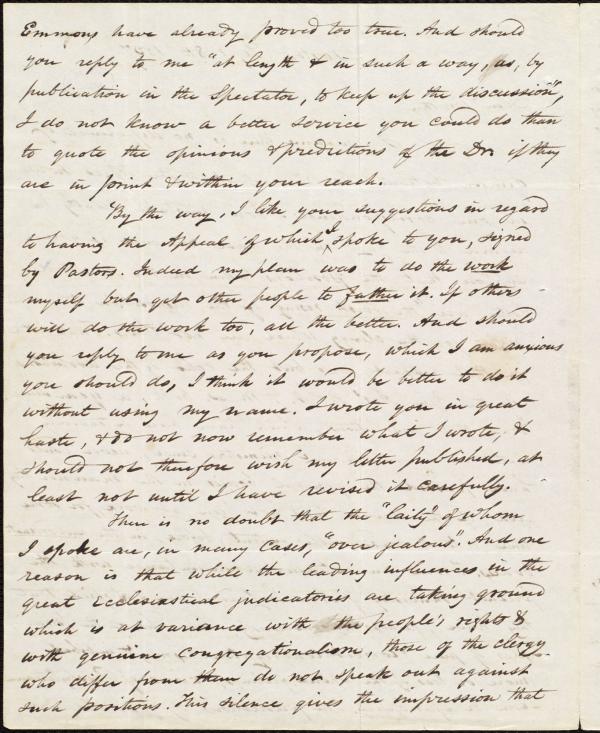 Emmons have already proved too true. And should
you reply to me "at length & in such a way, as, by
publication in the Spectator, to keep up the discussion",
I do not know a better service you could do than
to quote the opinions & predictions of the Dr. if they
are in print & within your reach.
By the way, I like your suggestions in regard
to having the Appeal of which I spoke to you, signed
by Pastors. Indeed my plan was to do the work
myself but get other people to father it. If others
will do the work too, all the better. And should
you reply to me as you propose, which I am anxious
you should do, I think it would be better to do it
without using my name. I wrote you in great
haste, & do not now remember what I wrote, &
should not therefore wish my letter published, at
least not until I have revised it carefully.
There is no doubt that the "laity" of whom
I spoke are, in many cases, "over jealous". And one
reason is that while the leading influences in the
great ecclesiastical judicatories are taking ground
which is at variance with the people's rights &
with genuine Congregationalism, those of the clergy
who differ from them do not speak out against
such positions. This silence gives the impression that